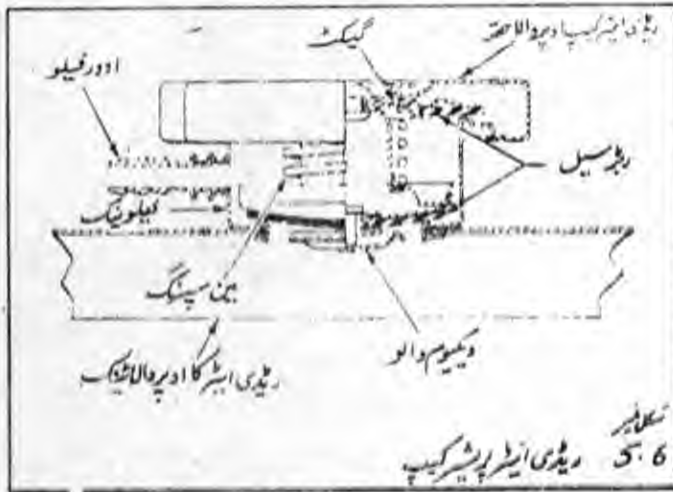 ریڈی ایٹر کیپ اوپر والا حصہ
گیسکٹ
اوور فیلو
ربڑ سیل
فیلر نیک
مین سپرنگ
ویکیوم والو
ریڈی ایٹر کا اوپر والا ٹینک
شکل نمبر
5.6 ریڈی ایٹر پریشر کیپ